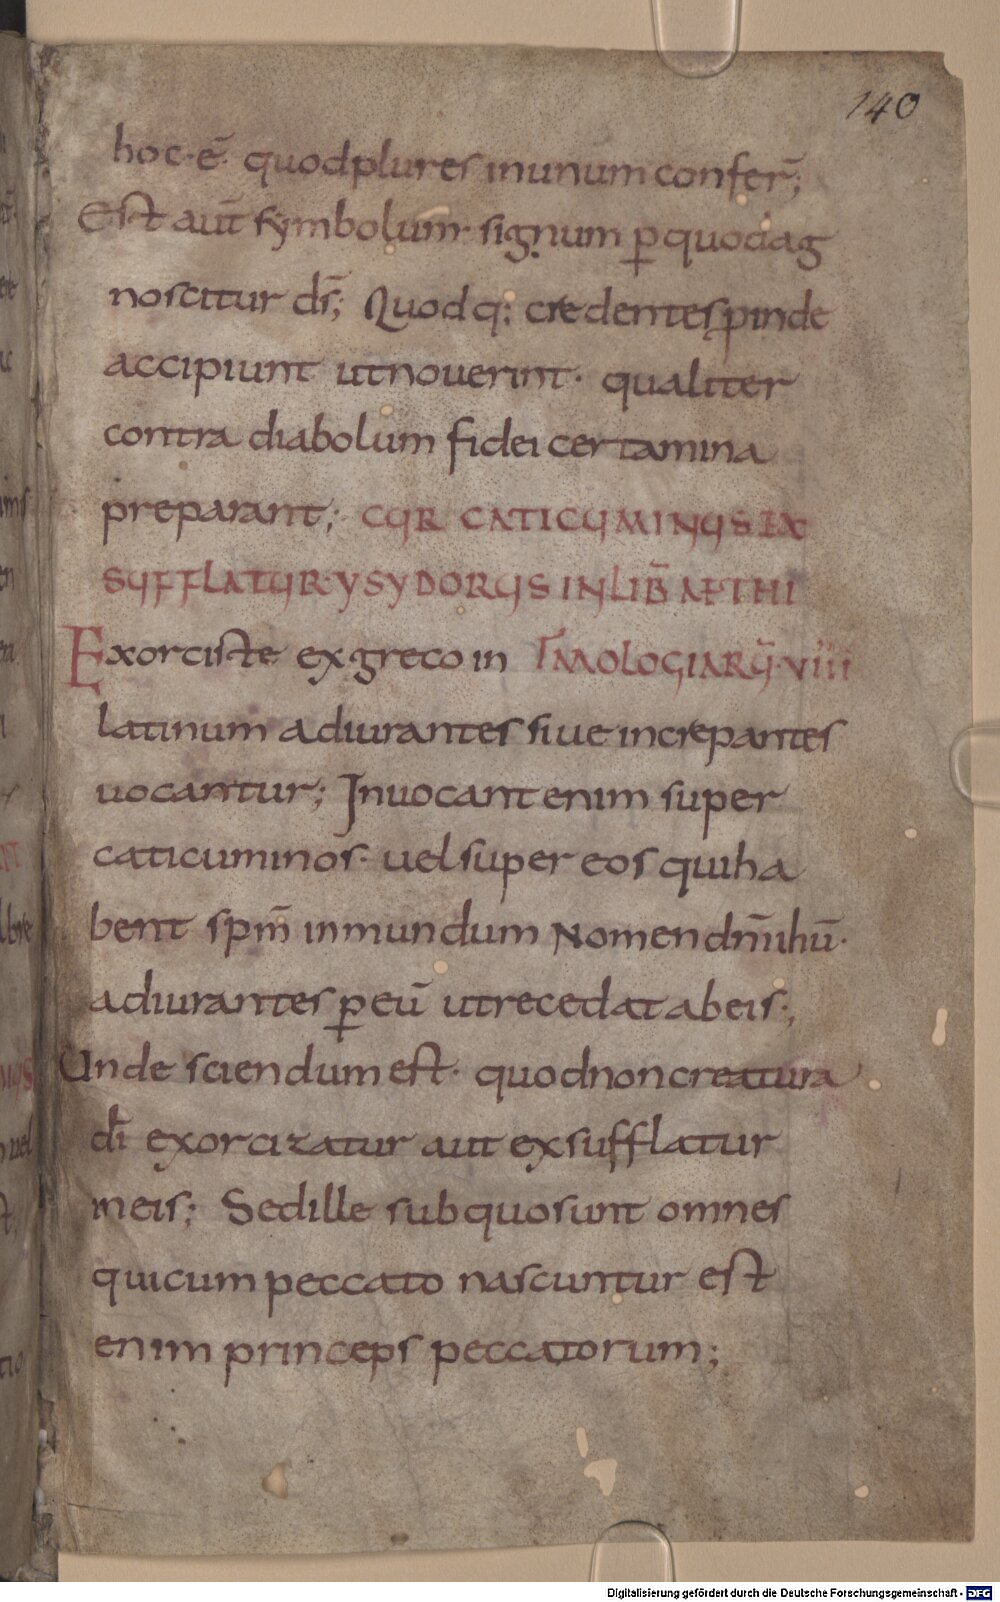 140
hoc·ē· quod plures in unum confer̄;
Est aut̄ symbolum· signum ꝑ quod ag
noscitur ds̄; Quodq; credentes ꝓinde
accipiunt ut nouerint· qualiter
contra diabolum fidei certamina
preparant; CUR CATICUMINUS EX
SUFFLATUR· YSYDORUS IN LIB̄ AETHI
Exorciste ex greco in MOLOGIARŪ· VIIII
latinum adiurantes siue increpantes
uocantur; Inuocant enim super
caticuminos· uel super eos qui ha
bent spm̄ inmundum Nomen dn̄i ihū·
adiurantes ꝑ eū ut recedat ab eis;
Unde sciendum est· quod non creatura
dī exorcizatur aut exsufflatur
in eis; Sed ille sub quo sunt omnes
qui cum peccato nascuntur est
enim princeps peccatorum;
Digitalisierung gefördert durch die Deutsche Forschungsgemeinschaft - DFG